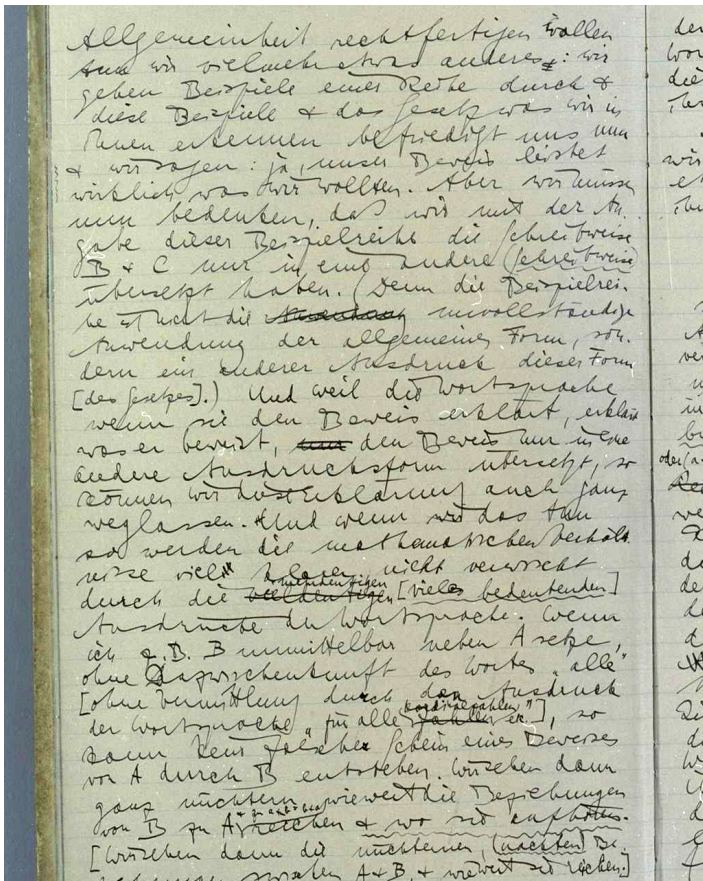 Allgemeinheit rechtfertigen wollen
tun wir vielmehr etwas anderes: wir
gehen Beispiele einer Reihe durch &
diese Beispiele & das Gesetz was wir in
ihnen erkennen befriedigt uns nun
& wir sagen: ja, unser Beweis leistet
wirklich was wir wollten. Aber wir müssen
nun bedenken, daß wir mit der An-
gabe dieser Beispielreihe die Schreibweise
B & C nur in eine andere (Schreibweise)
übersetzt haben. (Denn die Beispielrei-
he ist nicht die unvollständige
Anwendung der allgemeinen Form, son-
dern ein anderer Ausdruck dieser Form
[des Gesetzes].) Und weil die Wortsprache
wenn sie den Beweis erklärt, erklärt
was er beweist, den Beweis nur in eine
andere Ausdrucksform übersetzt, so
können wir diese Erklärung auch ganz
weglassen. Und wenn wir das tun
so werden die mathematischen Verhält-
nisse viel klarer, nicht verwischt
durch die [vieles bedeutenden]
Ausdrücke der Wortsprache. Wenn
ich z.B. B unmittelbar neben A setze,
ohne Dazwischenkunft des Wortes „alle"
[ohne Vermittlung durch den Ausdruck
der Wortsprache „für alle Kardinalzahlen etc."], so
kann kein falscher Schein eines Beweises
von A durch B entstehen. Wir sehen dann
ganz nüchtern wieweit die Beziehungen
von B zu A reichen & wo sie aufhören.
[Wir sehen dann die nüchternen, (nackten) Be-
ziehungen zwischen A & B, & wieweit sie reichen.]